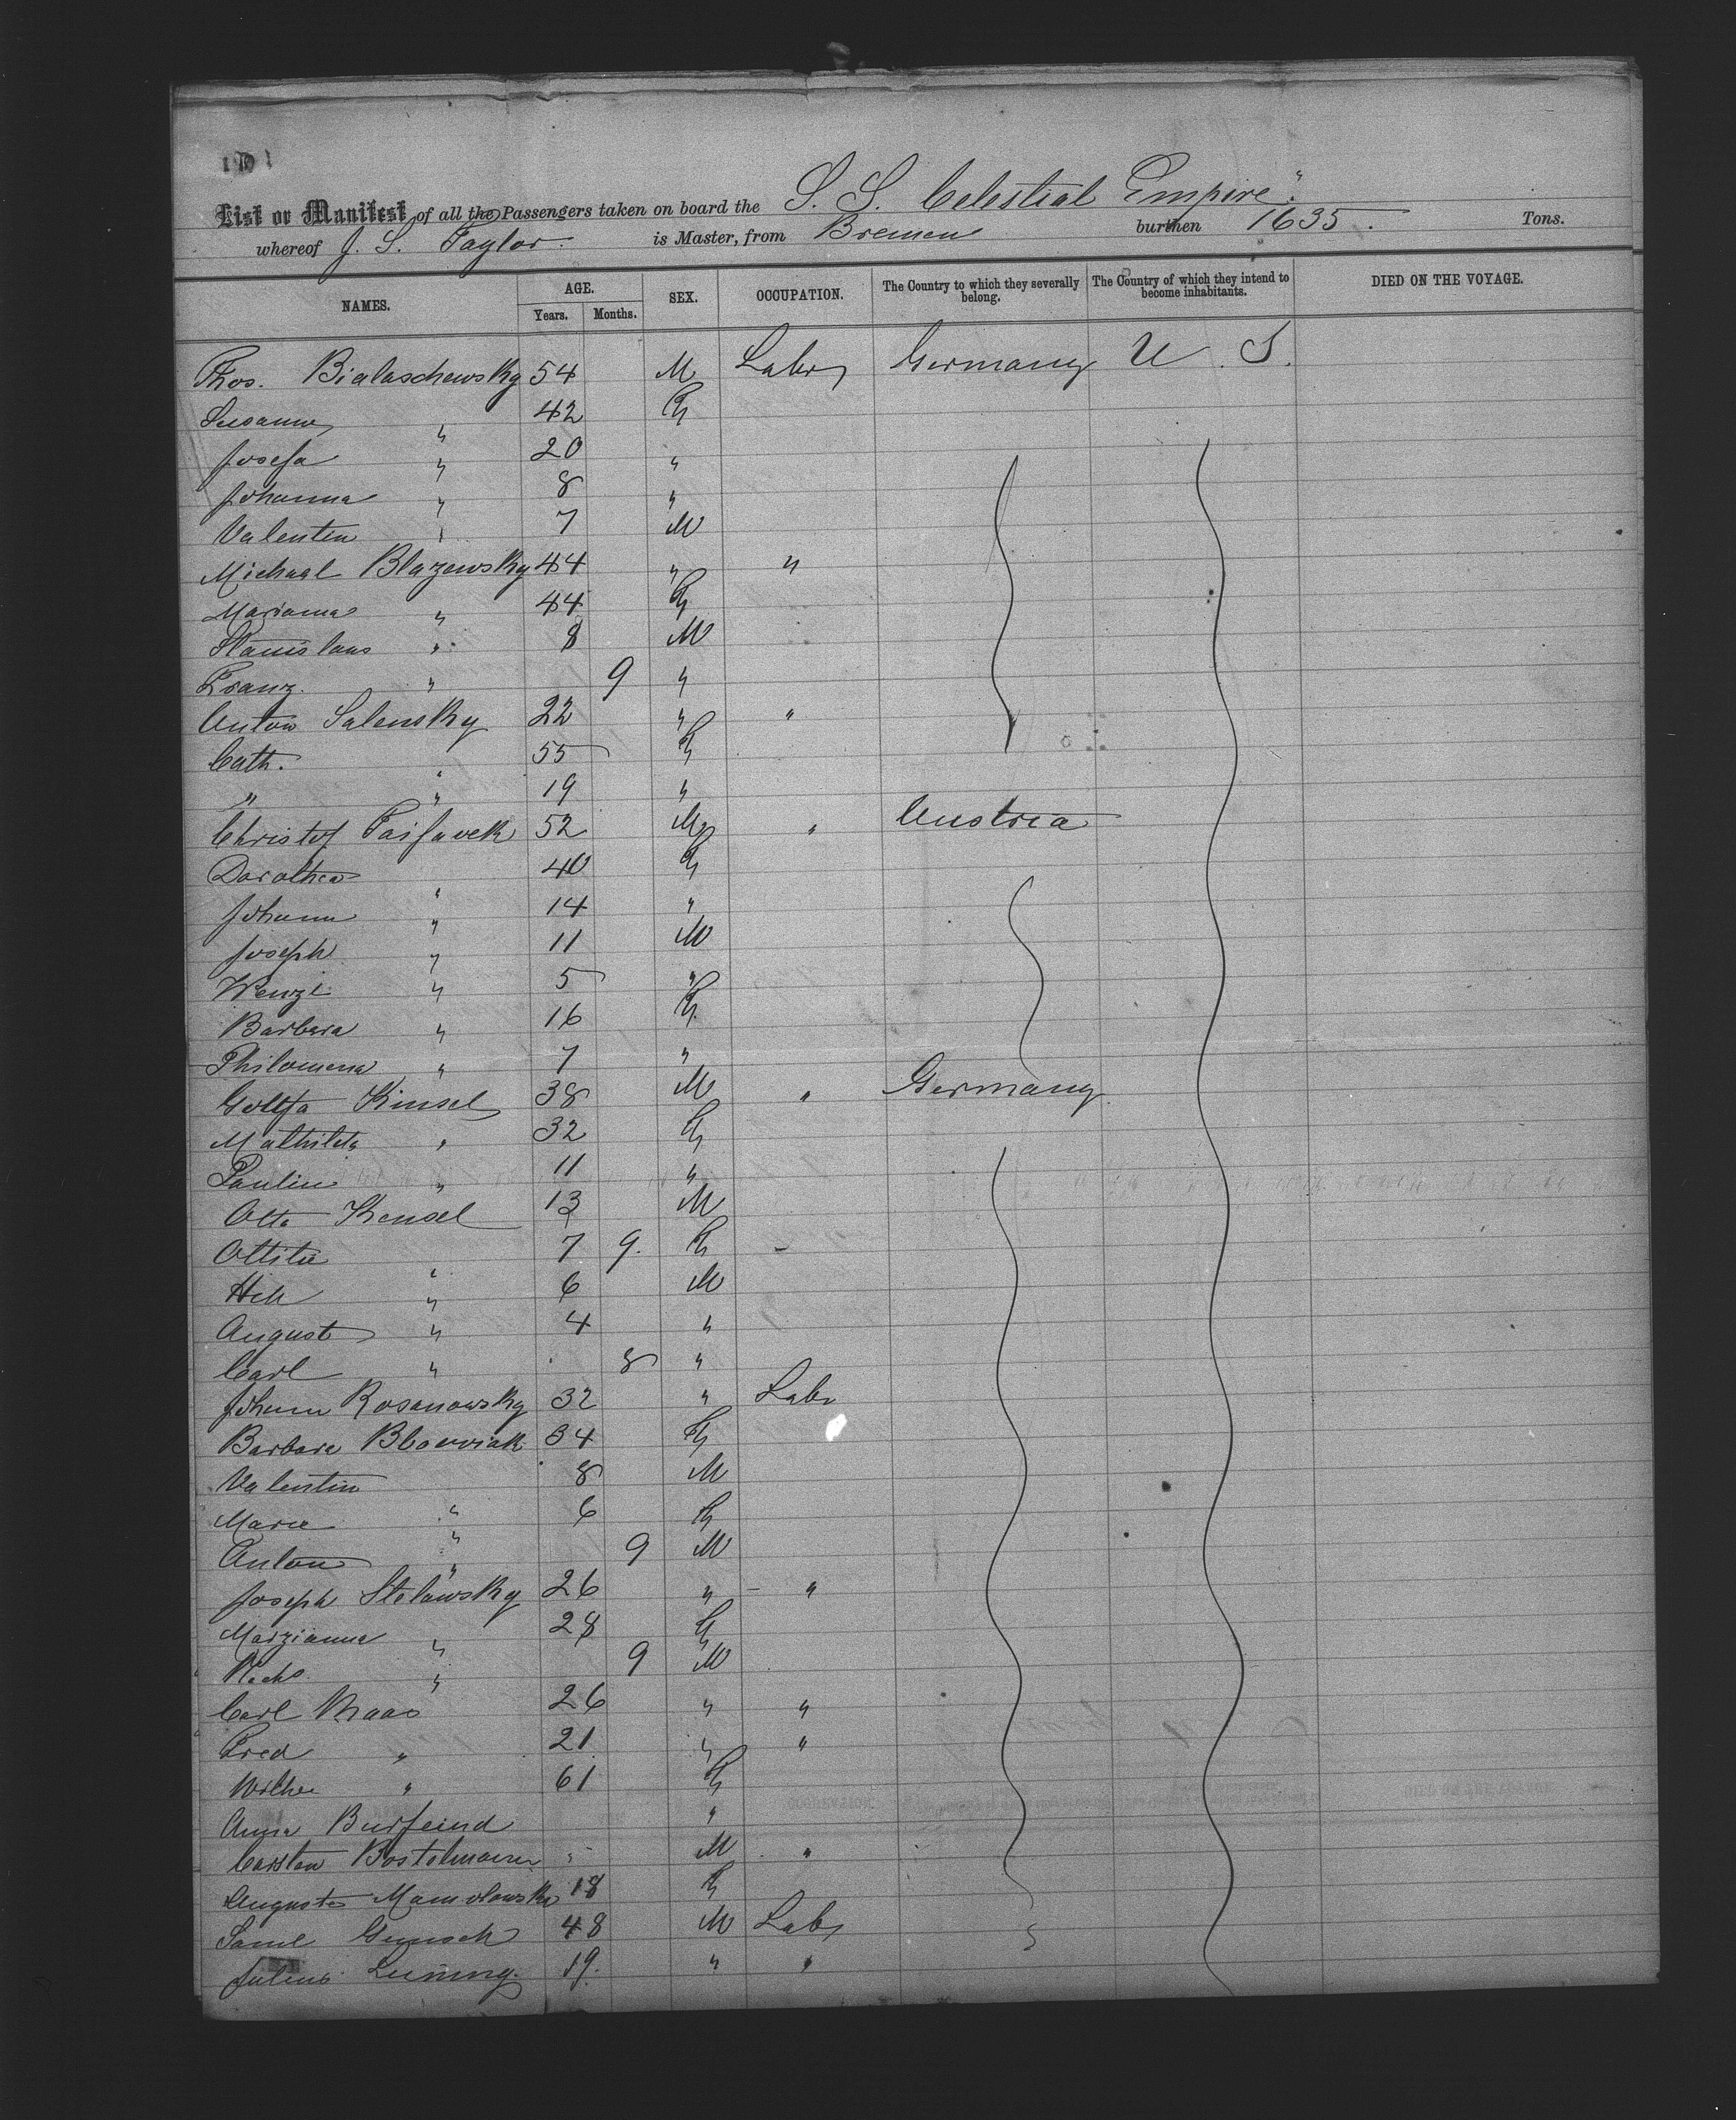 List or Manifest of all the Passengers taken on board the S. S. Celestial Empire"
whereof J. S. Taylor. is Master, from Bremen burthen 1635. Tons.
NAMES. AGE. Years. Months. SEX. OCCUPATION. The Country to which they severally belong. The Country of which they intend to become inhabitants. DIED ON THE VOYAGE.
Thos. Bialaschewsky 54 M Labr Germany U. S.
Susanna " 42 F
Josefa " 20 "
Johanna " 8 "
Valentin " 7 M
Michael Blazewsky 44 " "
Marianna " 44 F
Stanislaus " 8 M
Franz. " 9 "
Anton Salensky 22 " "
Cath. " 55 F
" " 19 "
Christof 52 M " Austria
Dorothea " 40 F
Johann " 14 "
Joseph " 11 M
Wenzl " 5 "
Barbara " 16 F
Philomena " 7 "
Kinsel 38 M " Germany
Mathilda " 32 F
Paulin " 11 "
Otto Kensel 13 M
Ottilie " 7 9. F -
" 6 M
August " 4 "
Carl " 8 "
Johann Rosanowsky 32 " Labr
Barbara 34 F
Valentin " 8 M
Marie " 6 F
Anton " 9 M
Joseph Stelawsky 26 " - "
Marzianna " 28 F
" 9 M
Carl Maas 26 " "
Fred " 21 " "
" 61 F
Anna Burfeind "
Carsten Bostelmann " M "
Auguste 18 F
Saml 48 M Labr
Julius Luning. 19. " "